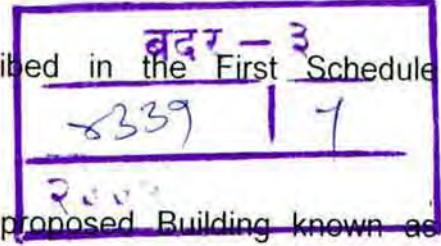 बदर - ३
ibed in the First Schedule
४३३९ | 1
proposed Building known as